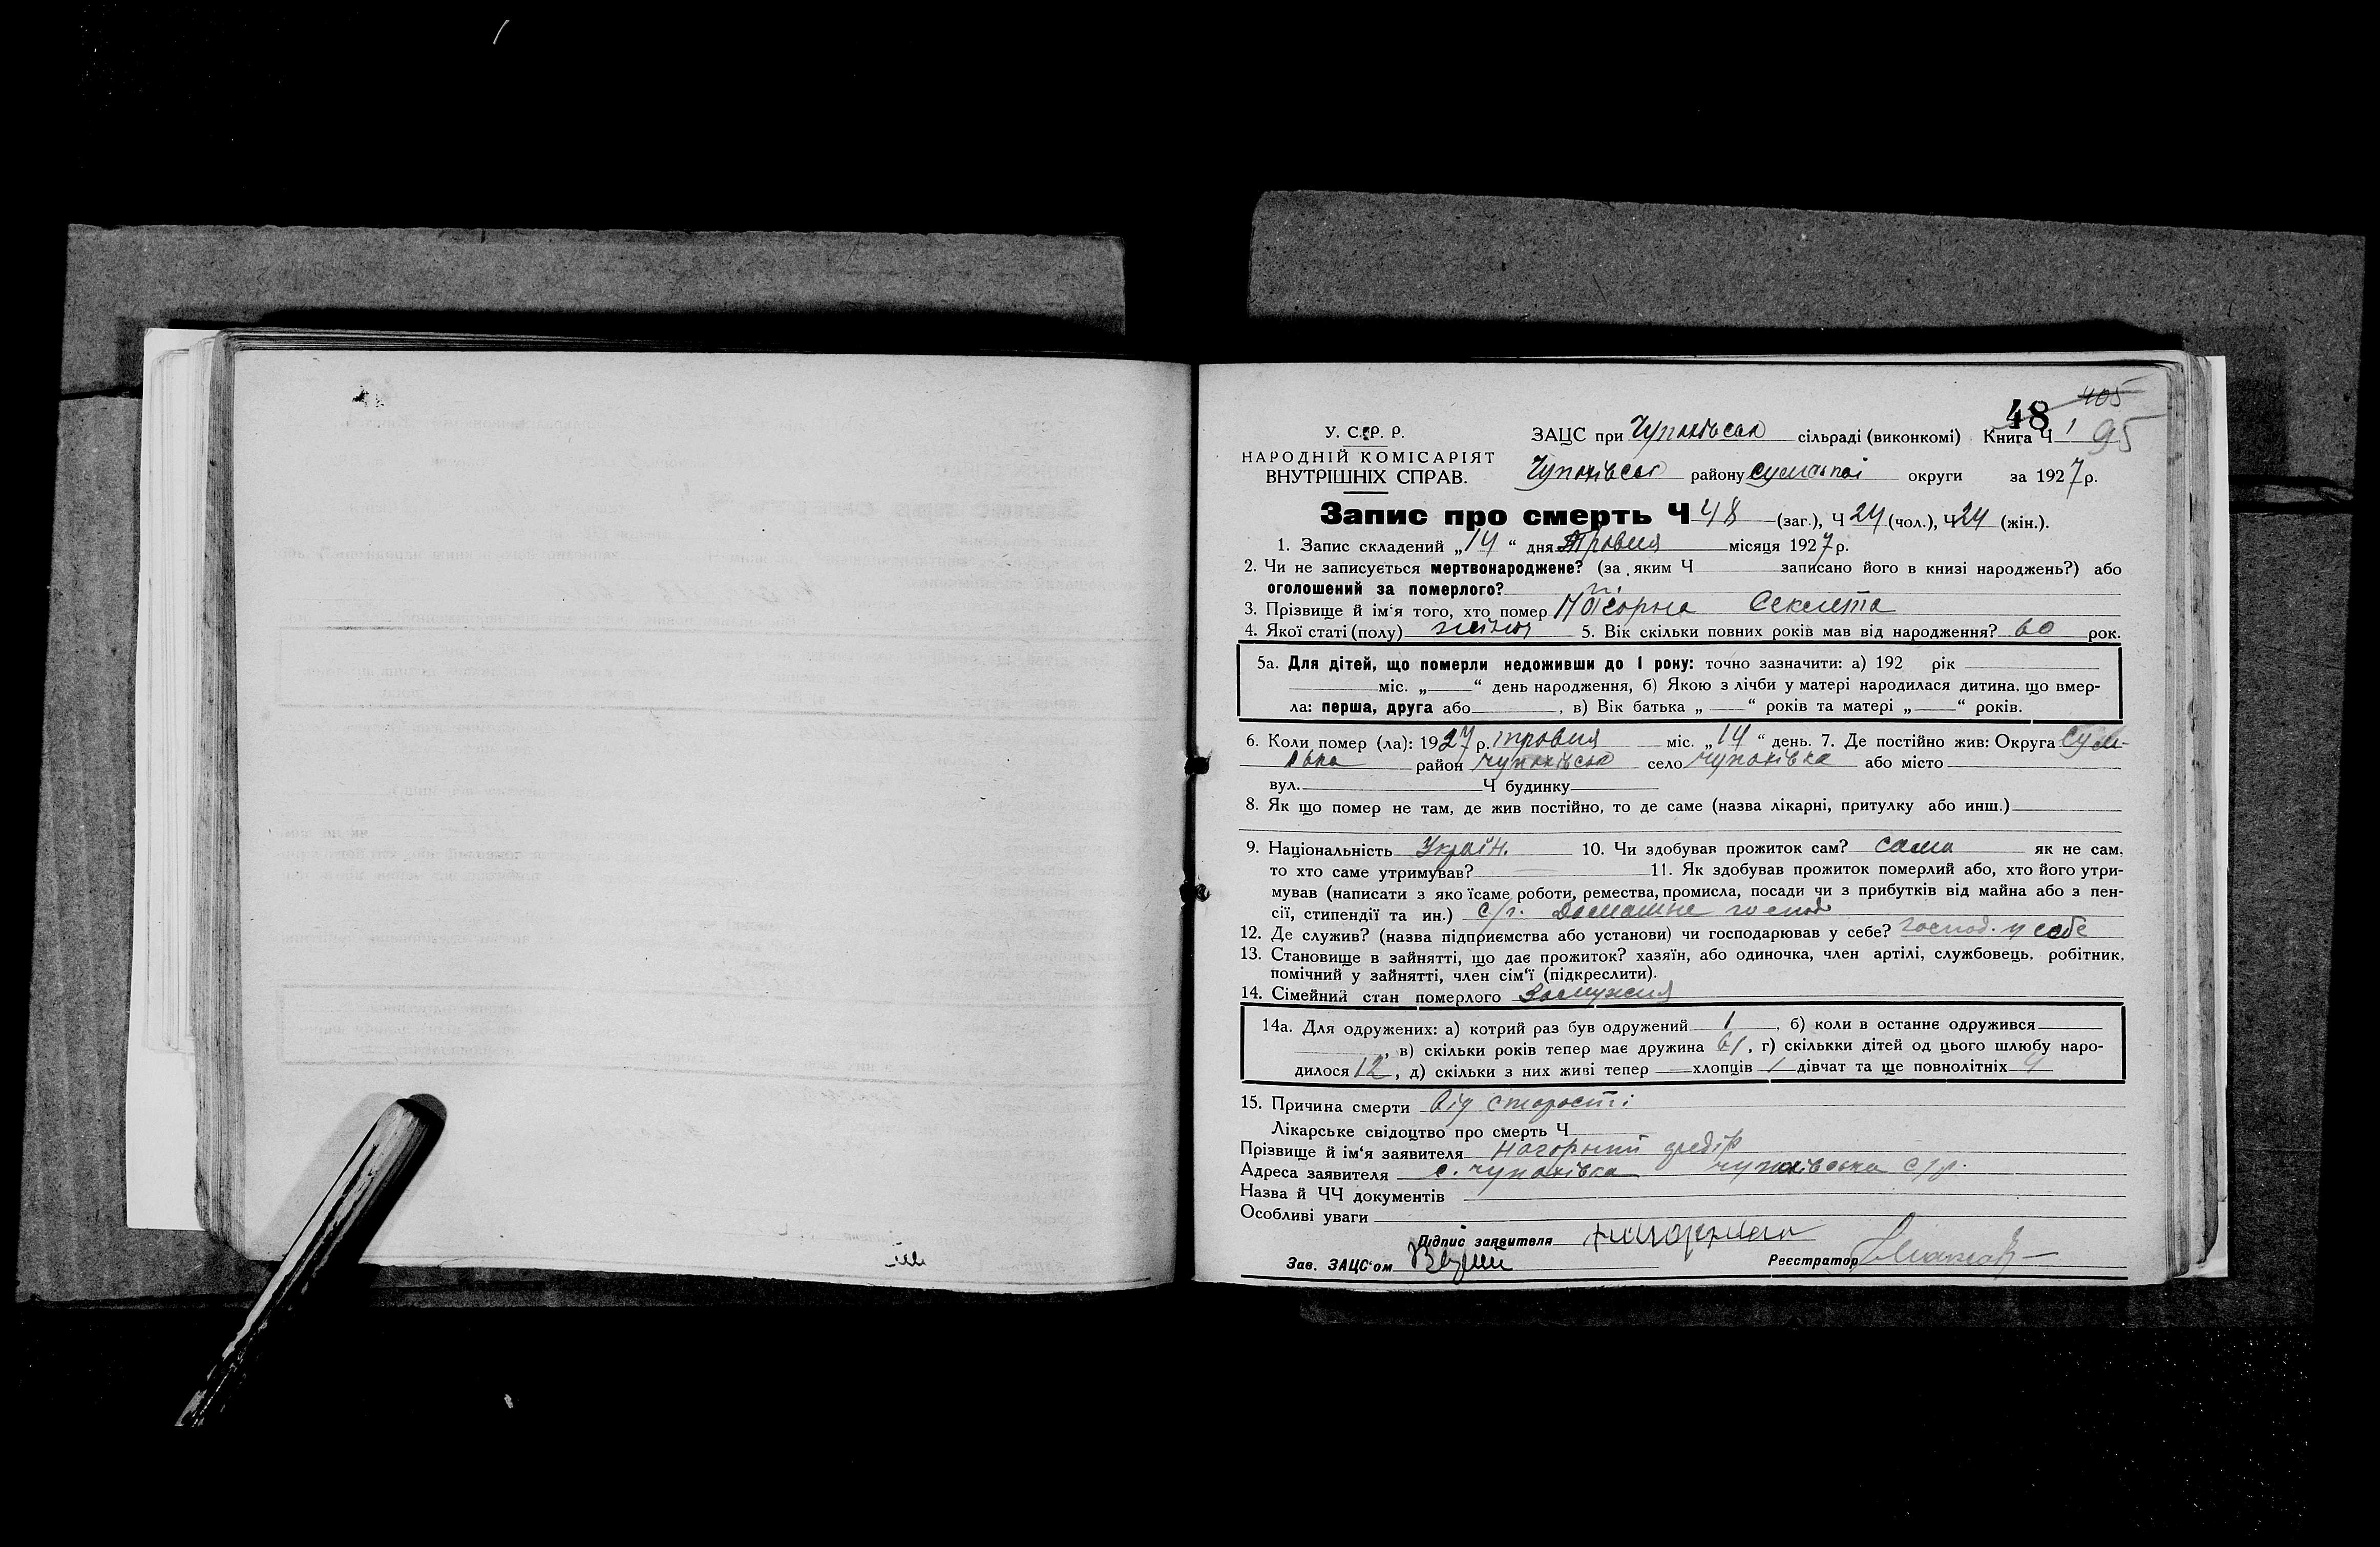 48 405
У. С. Р. Р. ЗАЦС при Чупахівськ сільраді (виконкомі) Книга Ч 1 95
НАРОДНІЙ КОМІСАРІЯТ
ВНУТРІШНІХ СПРАВ. Чупахівськ району Сумської округи за 1927 р.
Запис про смерть Ч 48 (заг.), Ч 24 (чол.), Ч 24 (жін.).
1. Запис складений „14“ дня травня місяця 1927 р.
2. Чи не записується мертвонароджене? (за яким Ч записано його в книзі народжень?) або
оголошений за померлого?
3. Прізвище й ім‘я того, хто помер Нагорна Секлета
4. Якої статі (полу) жіноч 5. Вік скільки повних років мав від народження? 60 рок.
5а. Для дітей, що померли недоживши до 1 року: точно зазначити: а) 192 рік
міс. „ “ день народження, б) Якою з лічби у матері народилася дитина, що вмер-
ла: перша, друга або , в) Вік батька „ “ років та матері „ “ років.
6. Коли помер (ла): 1927 р. травня міс. „14“ день. 7. Де постійно жив: Округа Сум-
ська район Чупахівськ село Чупахівка або місто
вул. Ч будинку
8. Як що помер не там, де жив постійно, то де саме (назва лікарні, притулку або инш.)
9. Національність Україн. 10. Чи здобував прожиток сам? сама як не сам,
то хто саме утримував? 11. Як здобував прожиток померлий або, хто його утри-
мував (написати з якоїсаме роботи, ремества, промисла, посади чи з прибутків від майна або з пен-
сії, стипендії та ин.) с/г. домашнє господ
12. Де служив? (назва підприємства або установи) чи господарював у себе? господ. у себе
13. Становище в зайнятті, що дає прожиток? хазяїн, або одиночка, член артілі, службовець, робітник,
помічний у зайнятті, член сім‘ї (підкреслити).
14. Сімейний стан померлого Замужня
14а. Для одружених: а) котрий раз був одружений 1 , б) коли в останнє одружився
, в) скільки років тепер має дружина 61, г) скількки дітей од цього шлюбу наро-
дилося 12, д) скільки з них живі тепер хлопців 1 дівчат та ще повнолітніх 4
15. Причина смерти від старості
Лікарське свідоцтво про смерть Ч
Прізвище й ім‘я заявителя Нагорний Федір
Адреса заявителя с. Чупахівка Чупахівська с/р.
Назва й ЧЧ документів
Особливі уваги
Підпис заявителя
Зав. ЗАЦС‘ом Реєстратор